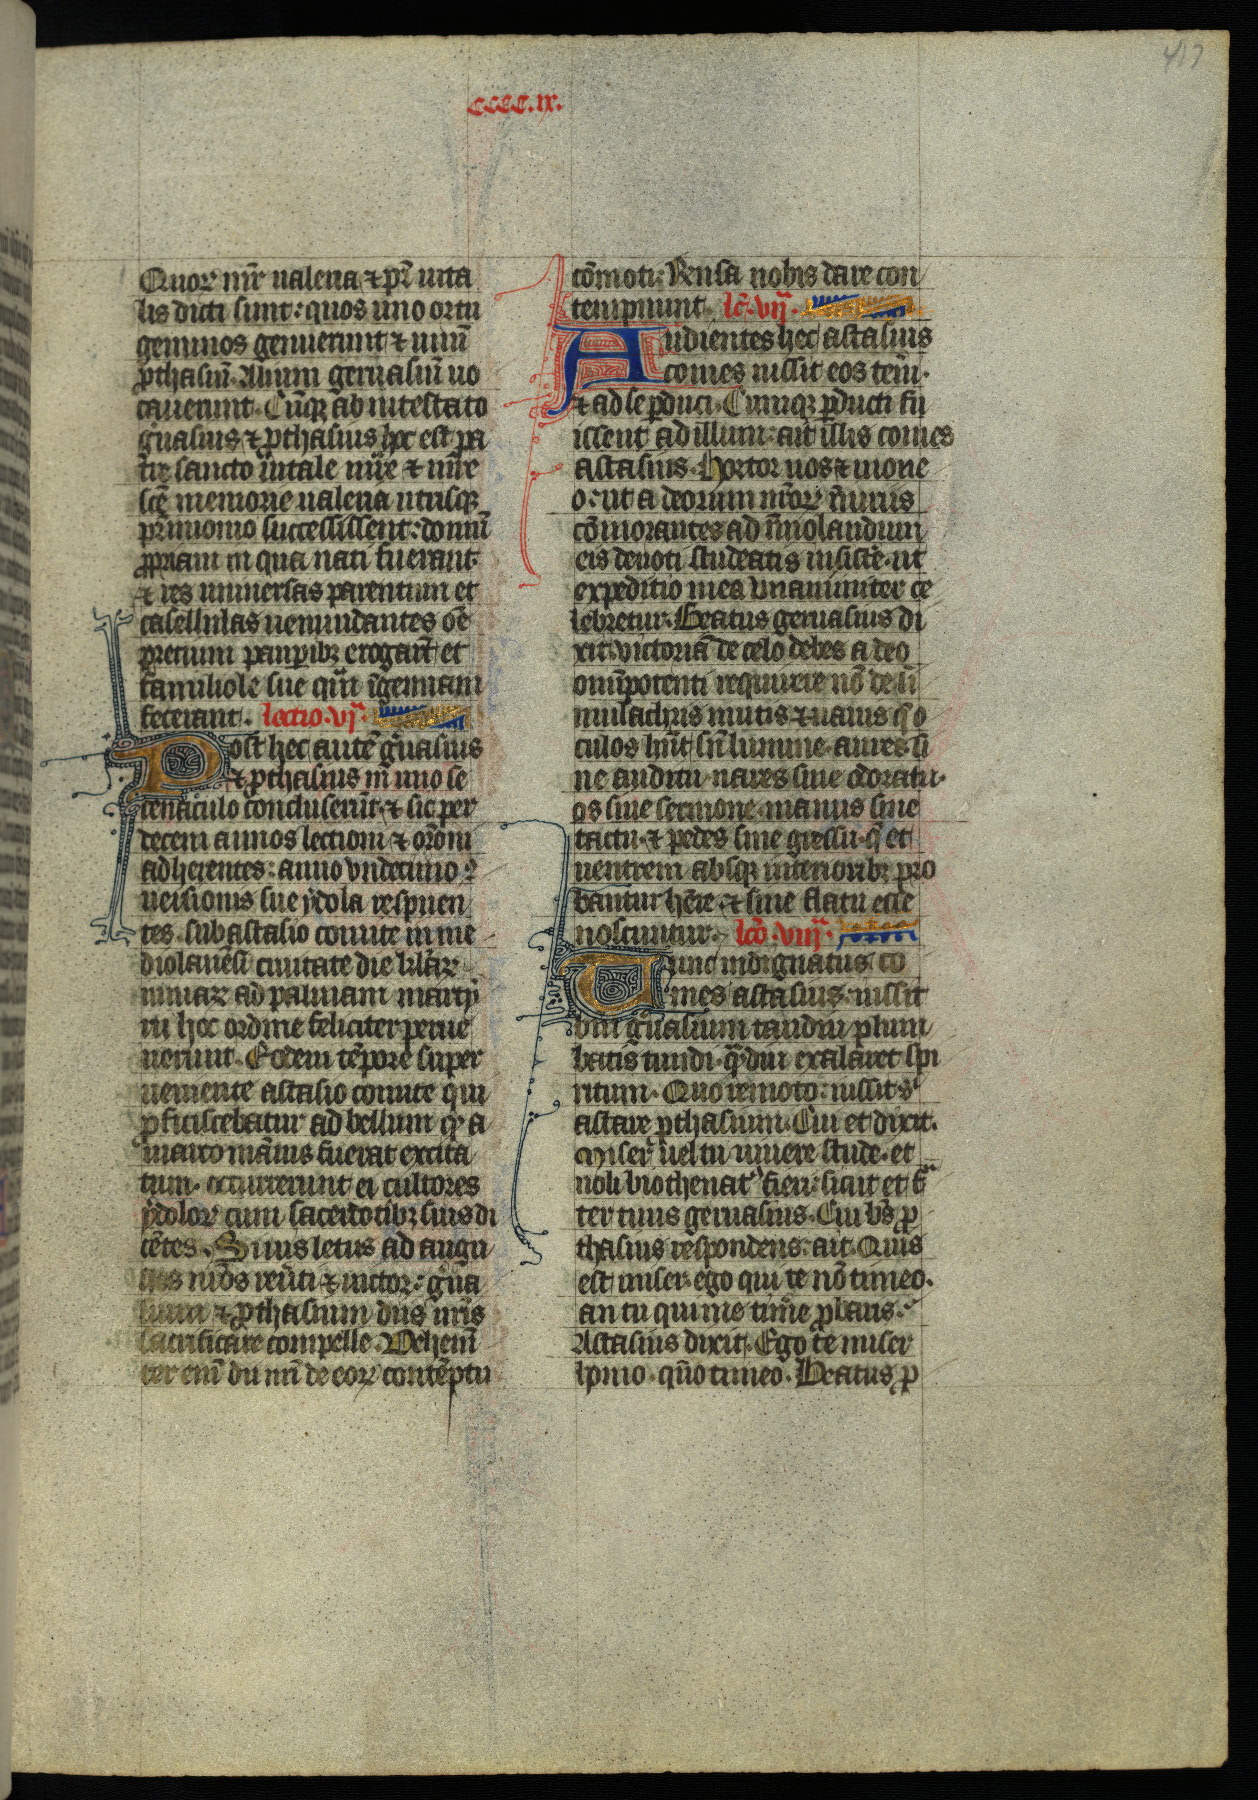 417
CCCC.ix.
Quoꝝ mr̄ ualeria ⁊ pr̄ uita
lis dicti sunt: quos uno ortu
geminos genuerunt ⁊ unū
ꝓthasiū. Alium geruasiū uo
cauerunt. Cūqꝫ ab intestato
g̃uasius ⁊ ꝓthasius hoc est pa
tri sancto uitale mr̃e ⁊ mr̃e
scē memorie ualeria utrisqꝫ
pr̃imonio successissent: domū
ꝓpriam in qua nati fuerant.
⁊ res uniuersas parentum et
casellulas uenundantes om̄e
precium pauꝑibꝫ erogarūt et
familiole sue qui īgenuam
fecerant. lectio .vj.ᵃ
Post hec autē g̃uasius
⁊ ꝓthasius in uno se
cenaculo concluserūt ⁊ sic per
decem annos lectioni ⁊ or̃oni
adherentes: anno vndecimo ꝯ
uersionis sue ydola respuen
tes. sub astasio comite in me
diolanēsi ciuitate die kl̃aꝝ
iunuaꝝ ad palmam martÿ
in hoc ordine feliciter perue
nerunt. Eodem tēpore super
ueniente astasio comite qui
ꝓficiscebatur ad bellum qͥ a
marco mānis fuerat excita
tum. occurrerunt ei cultores
ydoloꝝ cum sacerdotibꝫ suis di
cētes. Si uis letus ad augu
stos nr̃os reūti ⁊ uictor: g̃ua
sium ⁊ ꝓthasium diis nr̃is
sacrificare compelle. Uehemē
ter enī dii nr̃i de eoꝝ contēptu
cōmoti: Rensa nobis dare con
tempnunt. lc̄. vij.ᵃ
Audientes hec astasius
comes iussit eos tenī.
⁊ ad se ꝑduci. Cumqꝫ ꝑducti fu
issent ad illum: ait illis comes
astasius. Hortor uos ⁊ mone
o: ut a deorum nr̄oꝝ iniuriis
cōmorantes ad īmolandum
eis deuoti studeatis insistē. ut
expeditio mea vnanimiter ce
lebretur. Beatus geruasius di
xit. victoriā de celo debes a deo
omīpotenti requirere nō de si
mulachris mutis ⁊ uanis q̄ o
culos hn̄t sn̄ lumine. aures si
ne auditu. nares sine odoratu.
os sine sermone. manus sine
tactu. ⁊ pedes sine gressu. q̄ et
uentrem absqꝫ interioribꝫ pro
bantur hr̄e. ⁊ sine flatu esse
noscuntur. lc̄o. viij.ᵃ
Tunc indignatus co
mes astasius: iussit
bm̄ g̃uasium tamdiu plum
batis tundi. qͣdiu exalaret spi
ritum. Quo remoto: iussit sͥ
astare ꝓthasium. Cui et dixit.
Miser uel tu uiuere stude. et
noli biothenatꝰ fieri: sicut et frͣ
ter tuus geruasius. Cui bs̄ ꝓ
thasius respondens: ait. Quis
est miser. ego qui te nō timeo.
an tu qui me timē ꝓbaris.
Astasius dixit. Ego te miser
ipmo. qn̄o timeo. Beatus ꝓ